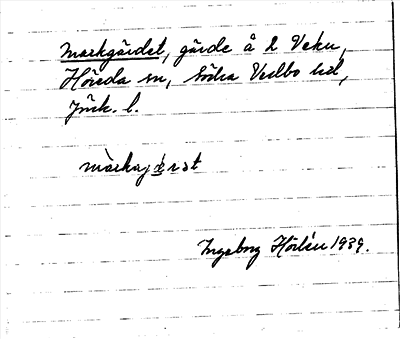 Markgärdet, gärde å 2 Veku,
Höreda sn, Södra Vedbo hd,
Jönk. l.
Ingeborg Hörlén 1939.